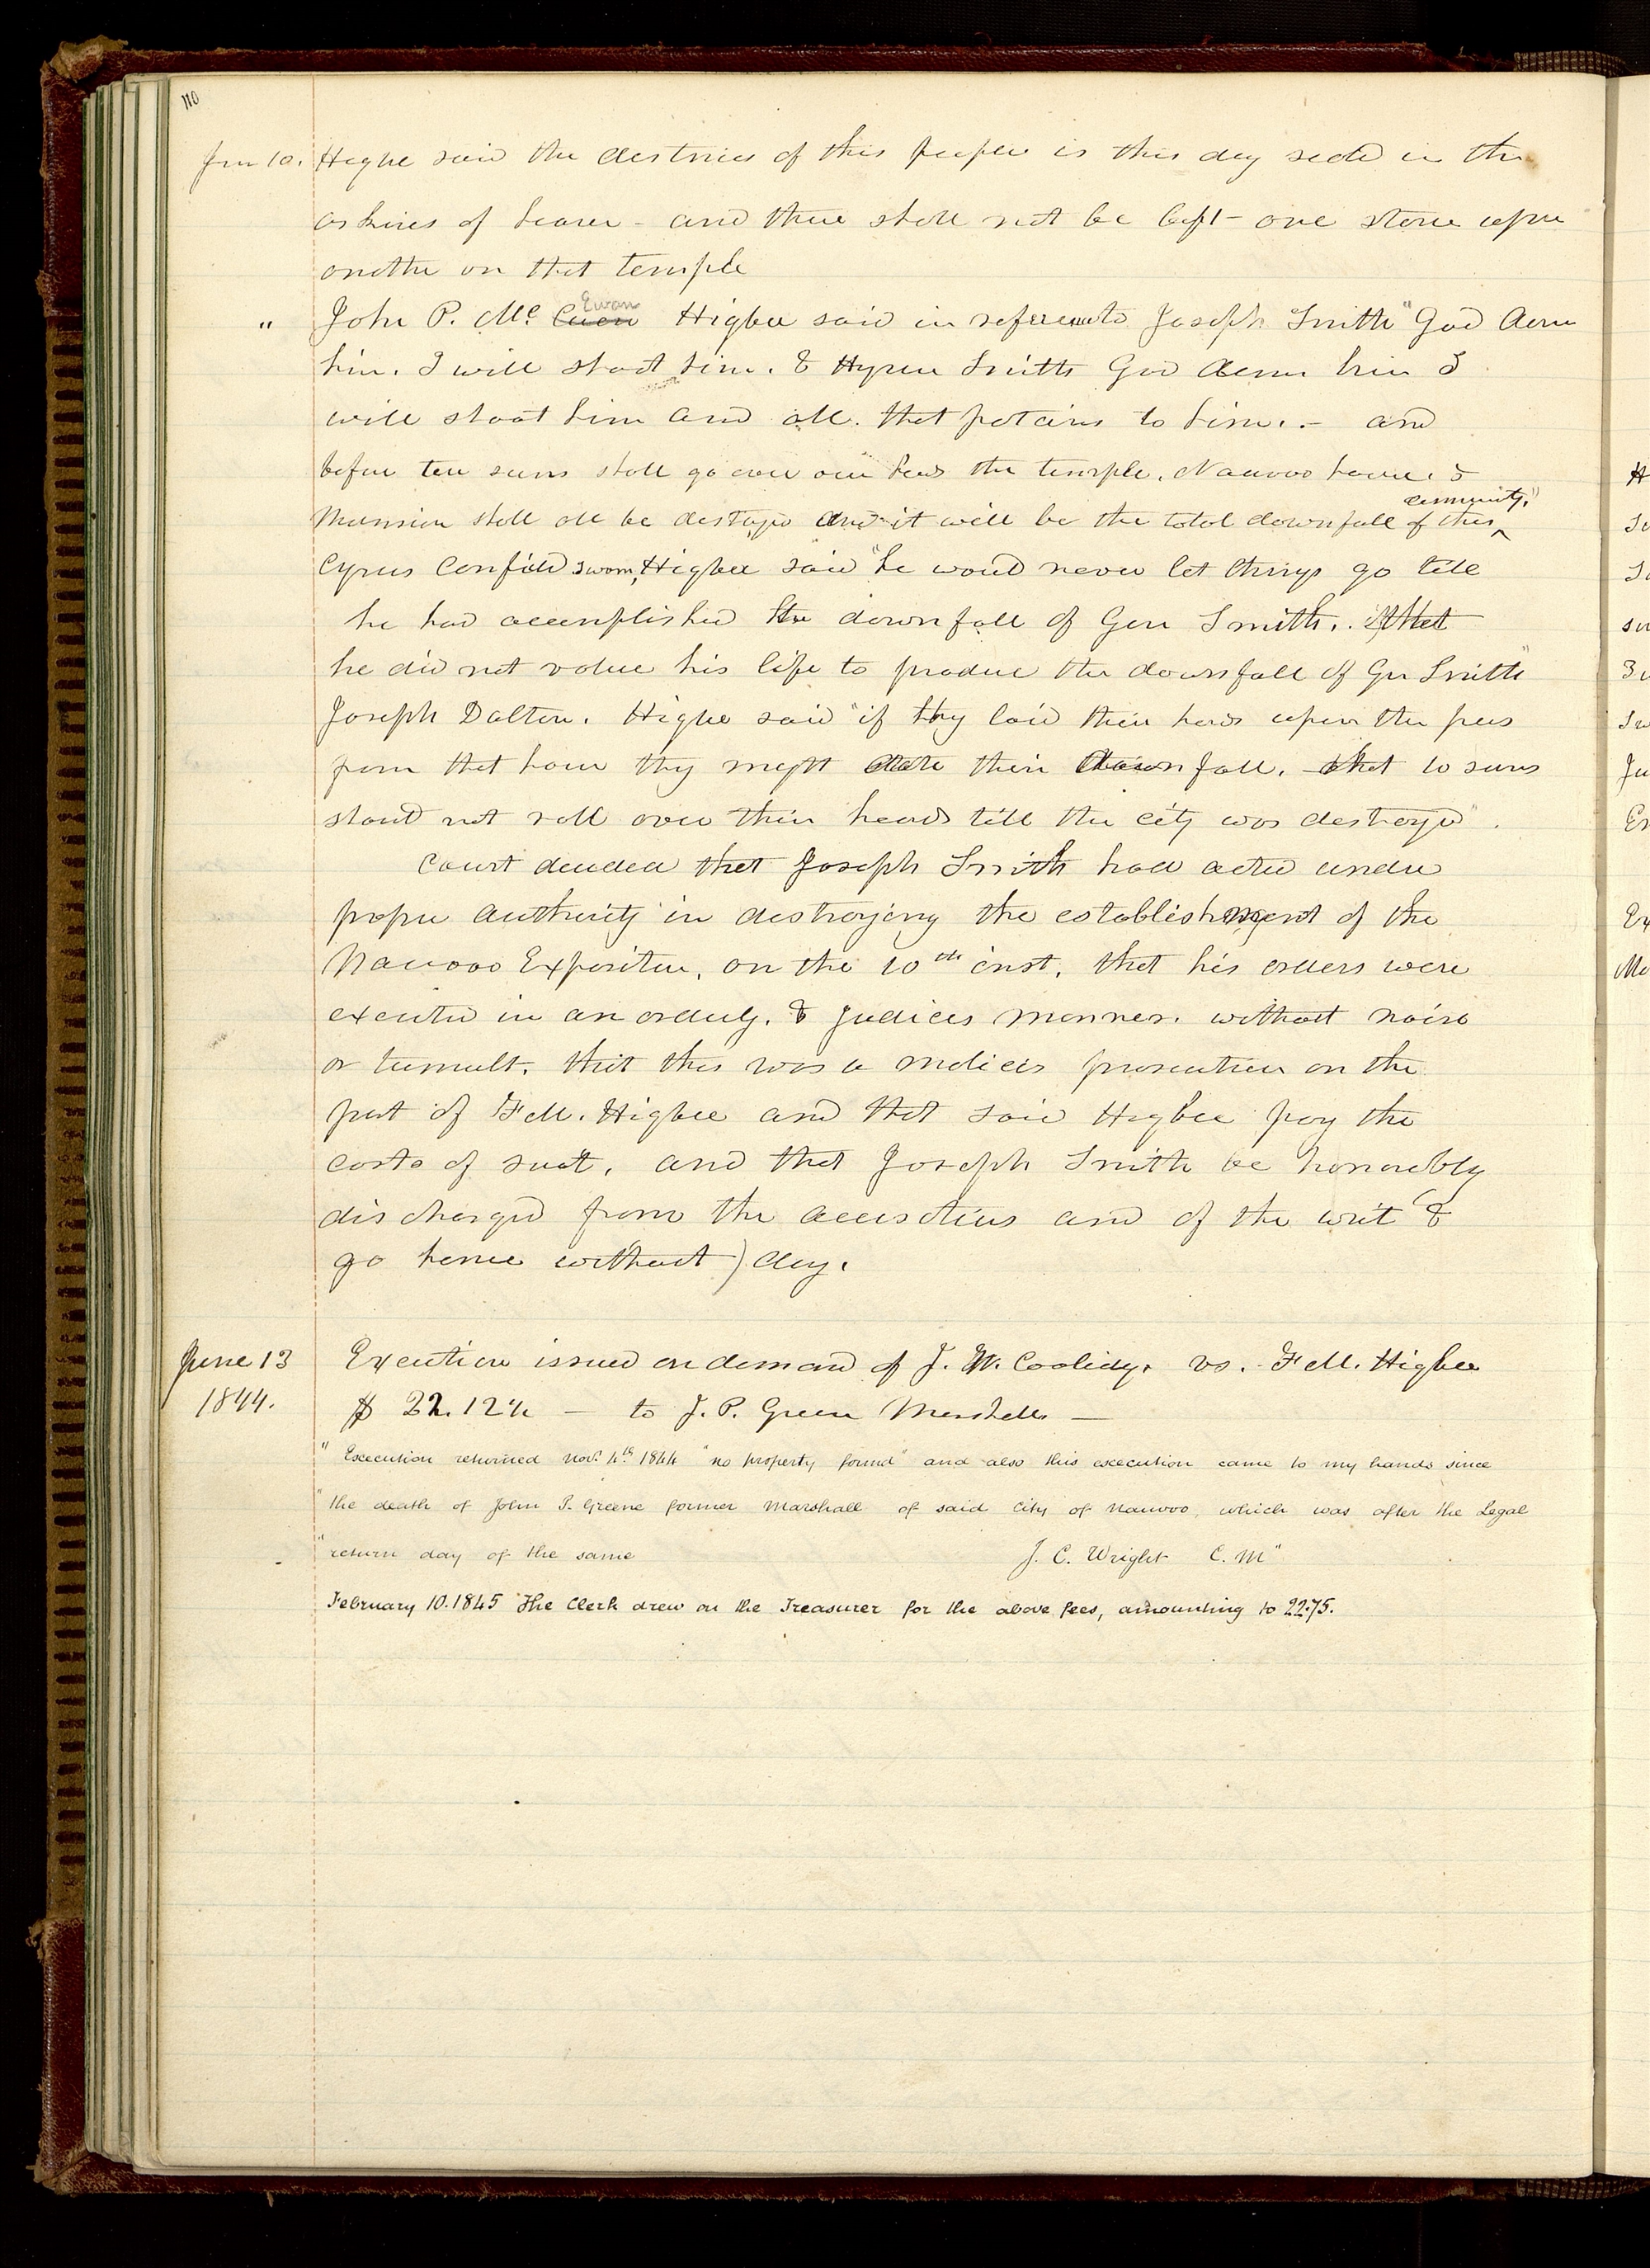 110
Jun 10. Higbe said the destinies of this people is this day seald in the
archives of heaven - and there shall not be left - one stone upon
anothe on that temple
" John P. Mc Cuen Ewan Higbee said in referenceto Joseph Smith "God damn
him. I will shoot him. & Hyrum Smith God damn him I
will shoot him and all. that pertains to him. - and
before ten suns shall go over our heads the temple. Nauvoo house. &
Mansion shall all be destroyed and it will be the total downfall of this community."
Cyrus Canfield sworn, Higbee said "he would never let things go till
he had accomplished the downfall of Gen Smith. that
he did not value his life to produce the downfall of Gen Smith"
Joseph Dalton. Higbe said "if they laid their hands upon the press
from that hour they might date their downfall. that 10 suns
should not roll over their heads till the city was destroyed".
Court decided that Joseph Smith had acted under
proper authority in destroying the establishment of the
Nauvoo Expositor, on the 10th inst, that his orders were
executed in an orderly. & Judicious manner. without noise
or tumult. that this was a malicious prosecution on the
part of F M. Higbee and that said Higbee pay the
costs of suit, and that Joseph Smith be honorably
discharged from the accusations and of the writ &
go hence without) day.
June 13 Execution issued on demand of J. W. Coolidge. vs. F M. Higbee
1844. $ 22.12½ — to J. P. Green Marshall —
" Execution returned Novr 4th 1844 "no property found" and also this execution came to my hands since
"the death of John P. Greene former Marshall of said City of Nauvoo, which was after the Legal
"return day of the same J. C. Wright C. M"
February 10. 1845 The Clerk drew on the Treasurer for the above fees, amounting to 22.75.